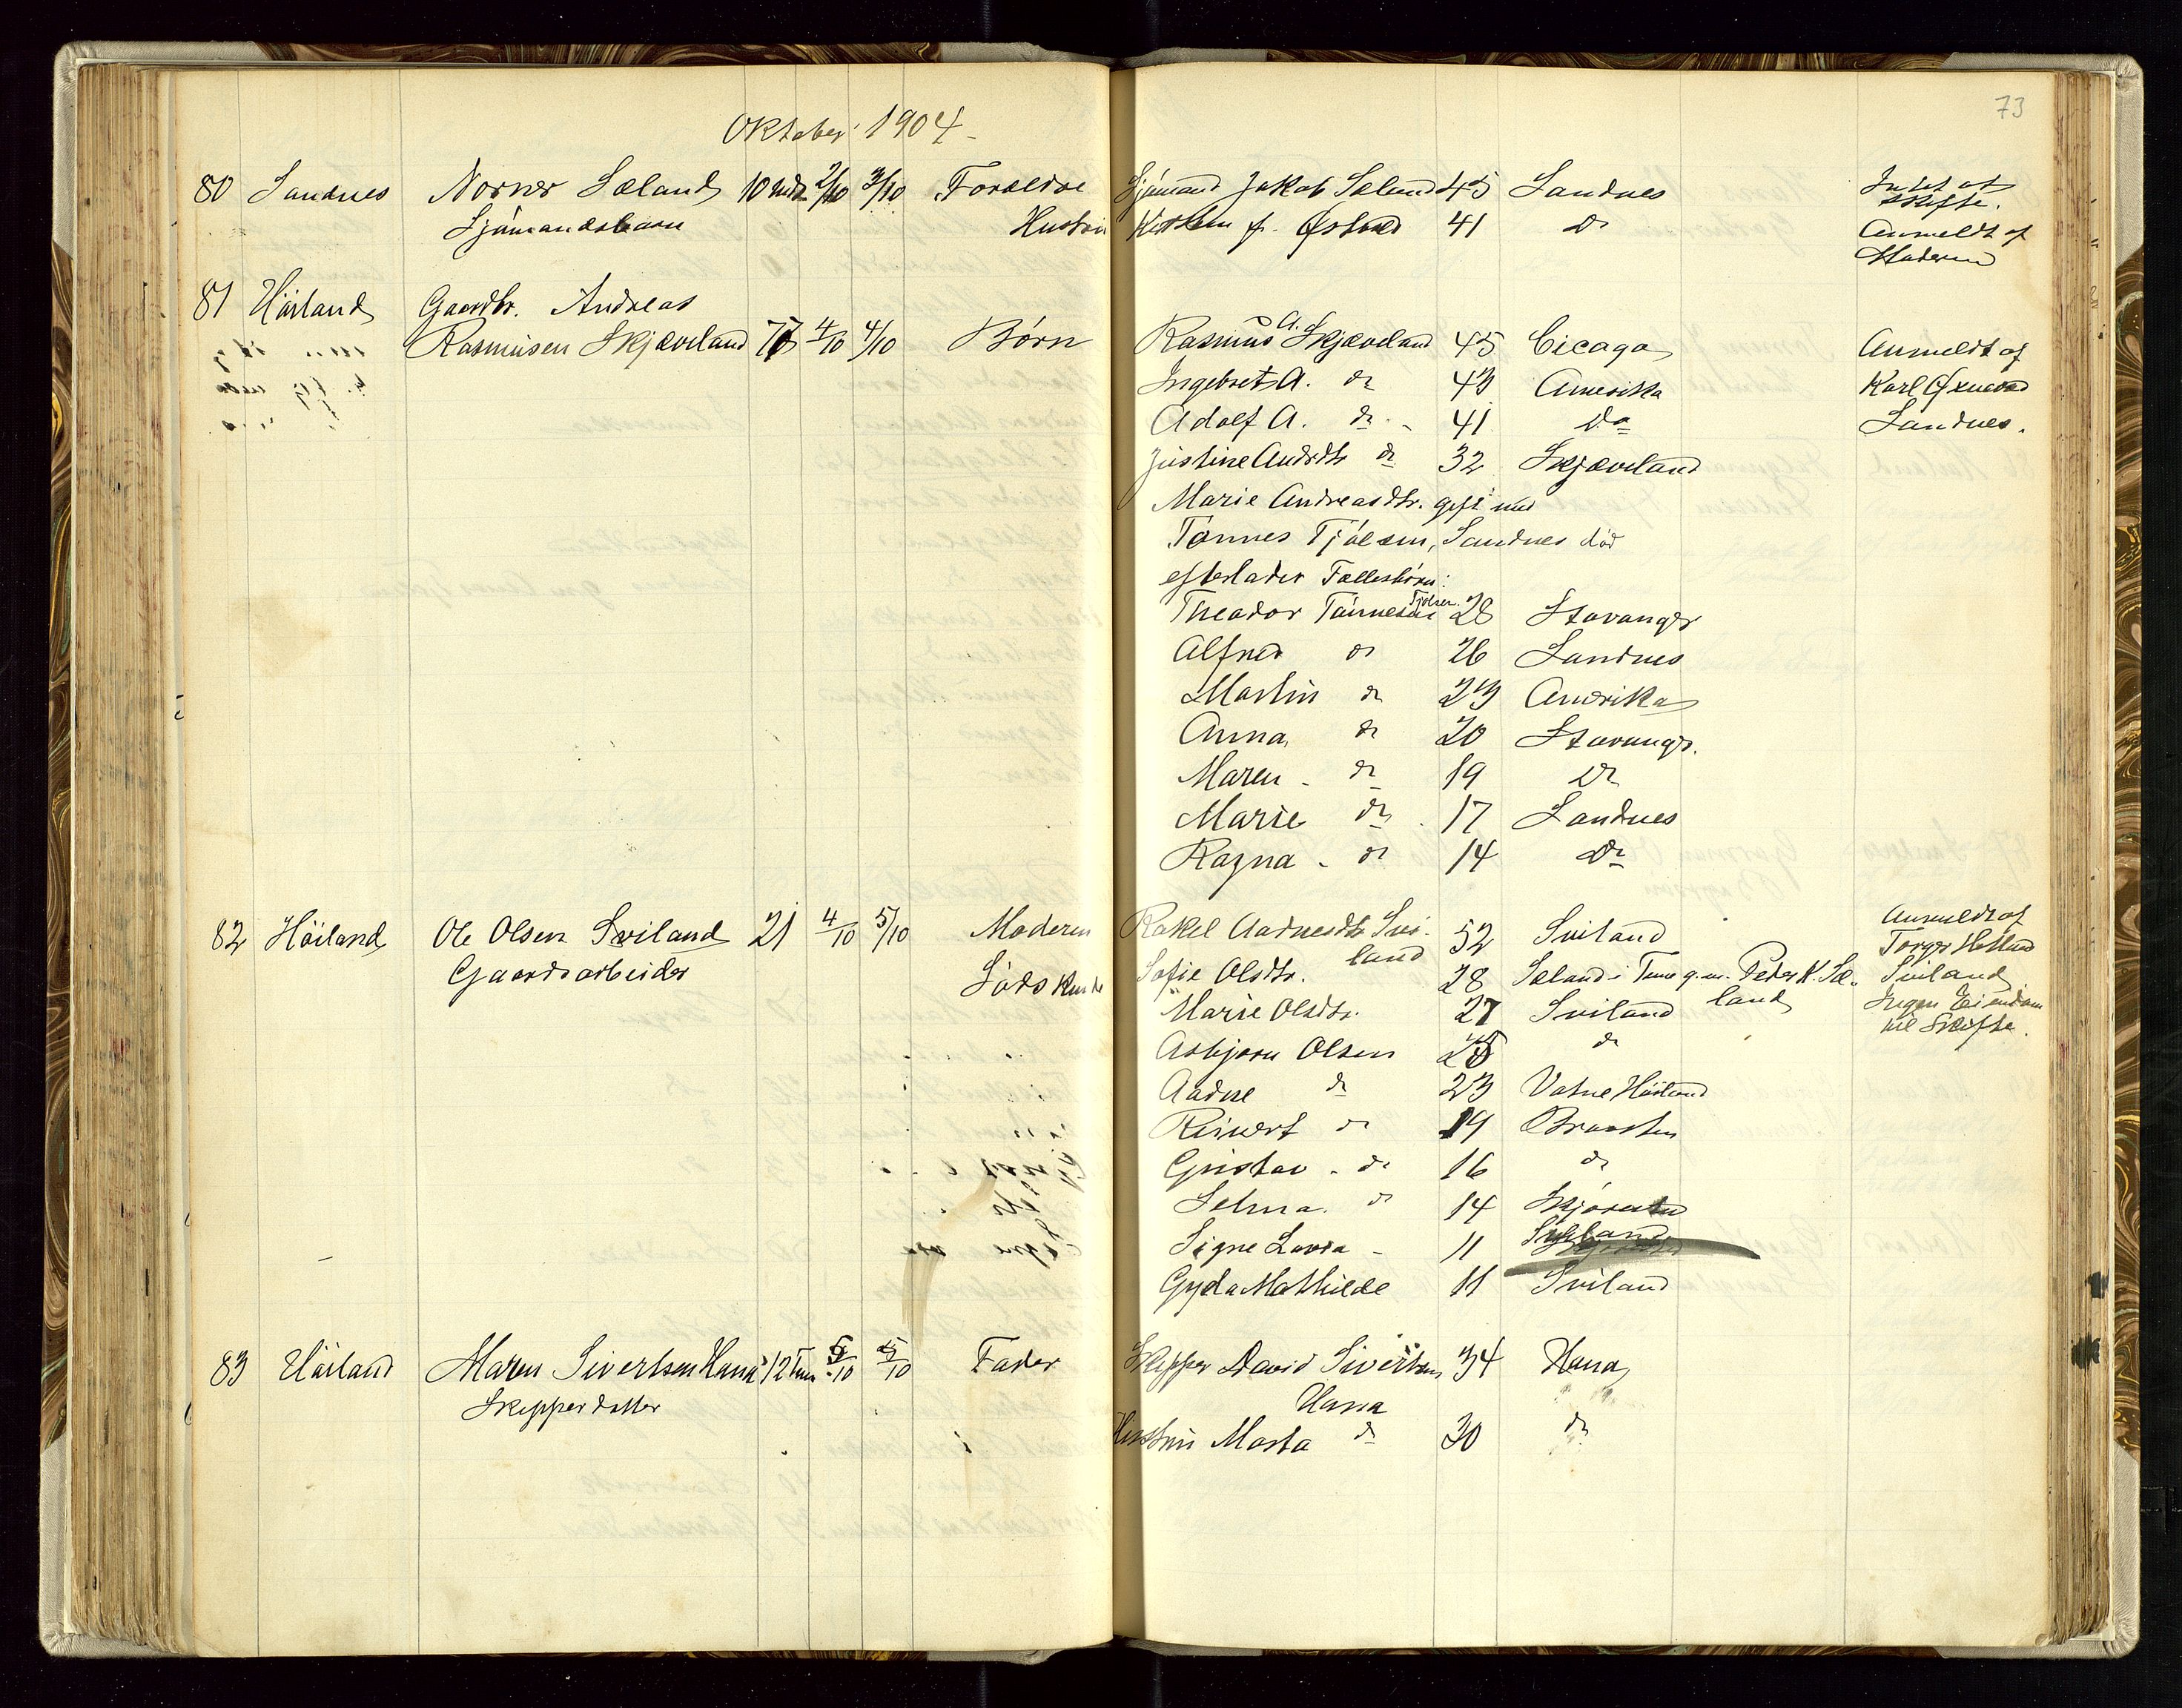 73
Oktober 1904
80 Sandnes Norner Sæland 10 mdr 2/10 3/10 Forældre Sjömand Jakob Sæland 45 Sandnes Intet at
Sjömandsbarn Hustru f. Østrad 41 Do skifte.
Anmeldt af
Moderen
81 Höiland Gaardbr. Andreas
Rasmusen Skjæveland 77 4/10 4/10 Børn Rasmus A. Skjæveland 45 Cicago Anmeldt af
Ingebret A. do 43 Amerika Karl
Adolf A. do - 41 Do Sandnes.
Justine Andrdtr do 32 Skjæveland
Marie Andreasdtr. gift med
Tönnes Tjölsen, Sandnes död
efterlader Fællesbörn:
Theodor Tönnesen Tjölsen 28 Stavanger
Alfred do 26 Sandnes
Martin do 23 Amerika
Anna do 20 Stavanger.
Maren - do 19 Do
Marie do 17 Sandnes
Ragna - do 14 Do
82 Höiland Ole Olsen Sviland 21 4/10 5/10 Moderen Rakel Aadnesdtr Svi- 52 Sviland Anmeldt af
Gaardsarbeider land Torger Hetland
Södskende Sofie Olsdtr. 28 Sæland i Time g.m. Peder K. Sæ- Sviland
Marie Olsdtr. 27 Sviland land Ingen Eiendom
til Skifte.
Asbjørn Olsen 25 do
Aadne do 23 Vatne Höiland
Reinert do 19 Braasten
Gustav - do 16 do
Selma do 14
Signe Lovra - 11
Gyda Mathilde 11 Sviland
83 Höiland Maren Sivertsen Hana 12 Tim 5/10 5/10 Fader Skipper David Sivertsen 34 Hana
Skipperdatter Hana
Hustru Marta do 30 do